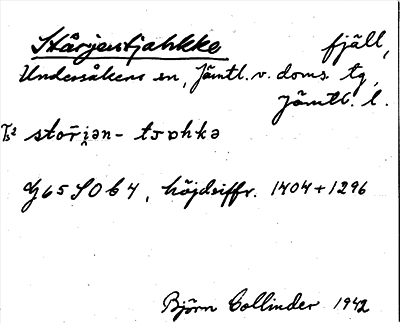 Stårjentjahkke fjäll,
Undersåkers sn, Jämtl. v. doms. tg,
Jämtl. l.
stori̯ən- tsɒhkə
G 65 SO b 4, höjdsiffr. 1404 + 1296
Björn Collinder 1942